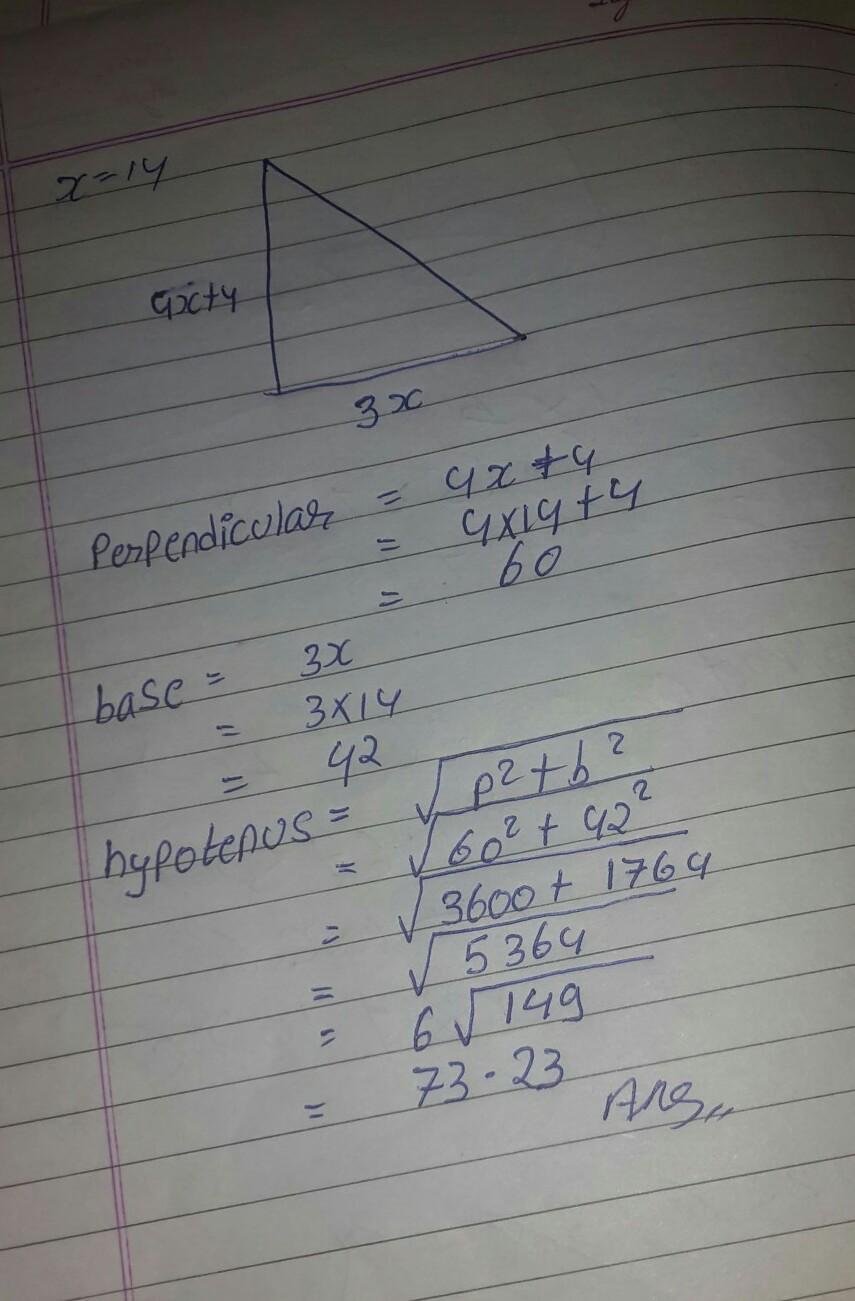 x=14
4x+4
3x
Perpendicular = 4x+4
= 4x14+4
= 60
base = 3x
= 3x14
= 42
hypotenus = √p²+b²
= √60²+42²
= √3600+1764
= √5364
= 6√149
= 73.23 Ans,,